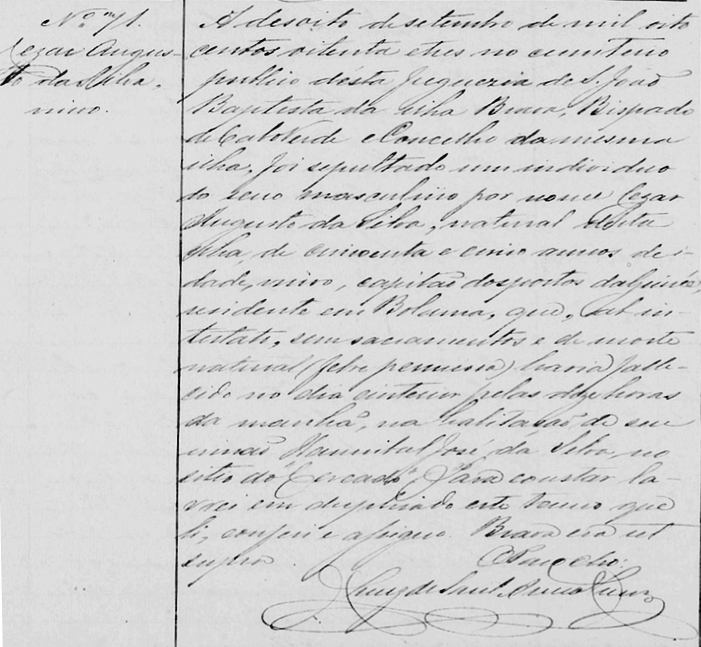 Nº 71.
Cezar Augus-
to da Silva,
viuvo.
A desoito de setembro de mil oito
centos oitenta e tres no cemiterio
publico désta freguezia de S. João
Baptista da ilha Brava, Bispado
de Caboverde e Concelho da mesma
ilha, foi sepultado um individuo
do sexo masculino por nome Cezar
Augusto da Silva, natural désta
ilha, de cincoenta e cinco annos de i-
dade, viuvo, capitão dos portos da Guiné,
residente em Bolama, que, ab in-
testato, sem sacramentos e de morte
natural (febre perniciosa) havia falle-
cido no dia anterior pelas onze horas
da manhã, na habitação de seu
irmão Hannibal José da Silva, no
sitio do "Cercado". Para constar la-
vrei em duplicado este termo que
li, conferi e assigno. Brava era ut
supra.
O Parocho: